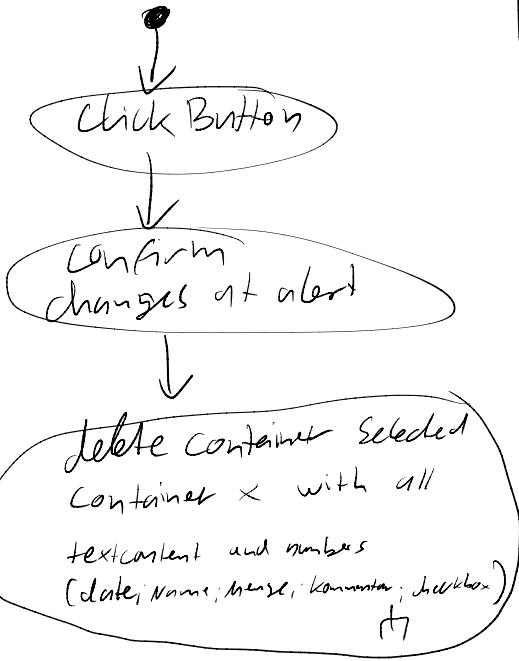 Click Button
confirm
changes at alert
delete container selected
container x with all
textcontent and numbers
(date; Name; Menge; Kommentar; checkbox)